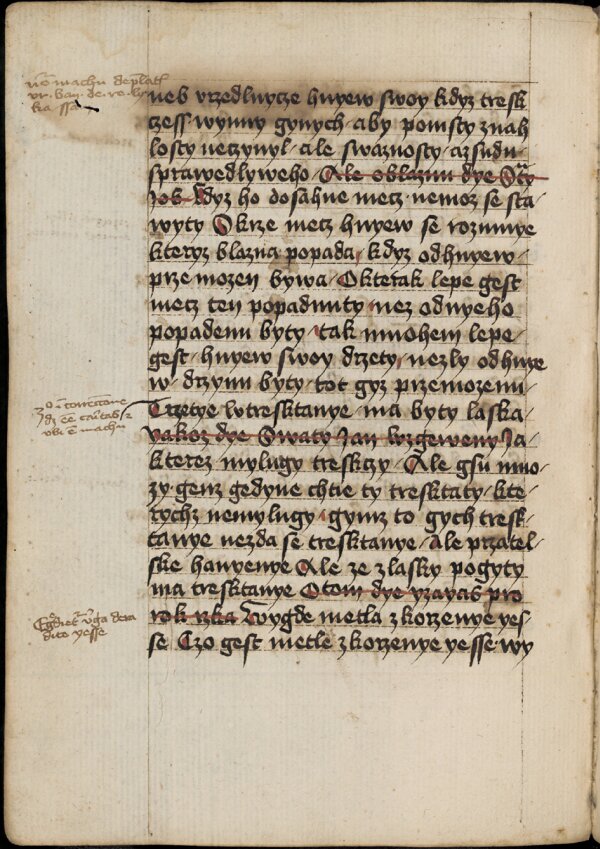 neb vrzedlnycze hnyew swoy kdyz tresk
czess wynny gynych aby pomsty znah
losty neczynyl ale swaznosty azsudu
sprawedlyweho Ale oblaznu dye Swaty
Job kdyz ho dosahne mecz nemoz se sta
wyty Skrze mecz hnyew se rozumye
kteryz blazna popada kdyz odhnyew
prze mozen bywa Okterak lepe gest
mecz ten popadnuty nez odnyeho
popadenu byty tak mnohem lepe
gest hnyew swoy drzety nezly odhnye
w drzynu byty tot gyz przemozenu
Trzetye wtresktanye ma byty laska
yakoz dye Swaty Jan wzgeweny Ja
kterez mylugy treskczy Ale gsu mno
zy genz gedyne chtie ty tresktaty kte
rychz nemylugy gymz to gych tresk
tanye nezda se tresktanye Ale przatel
ske hanyenye Ale ze zlasky pogyty
ma tresktanye Otom dye yzayas pro
rok rzka Wygde metla zkorzenye yes
se Czo gest metle zkorzenye yesse wy